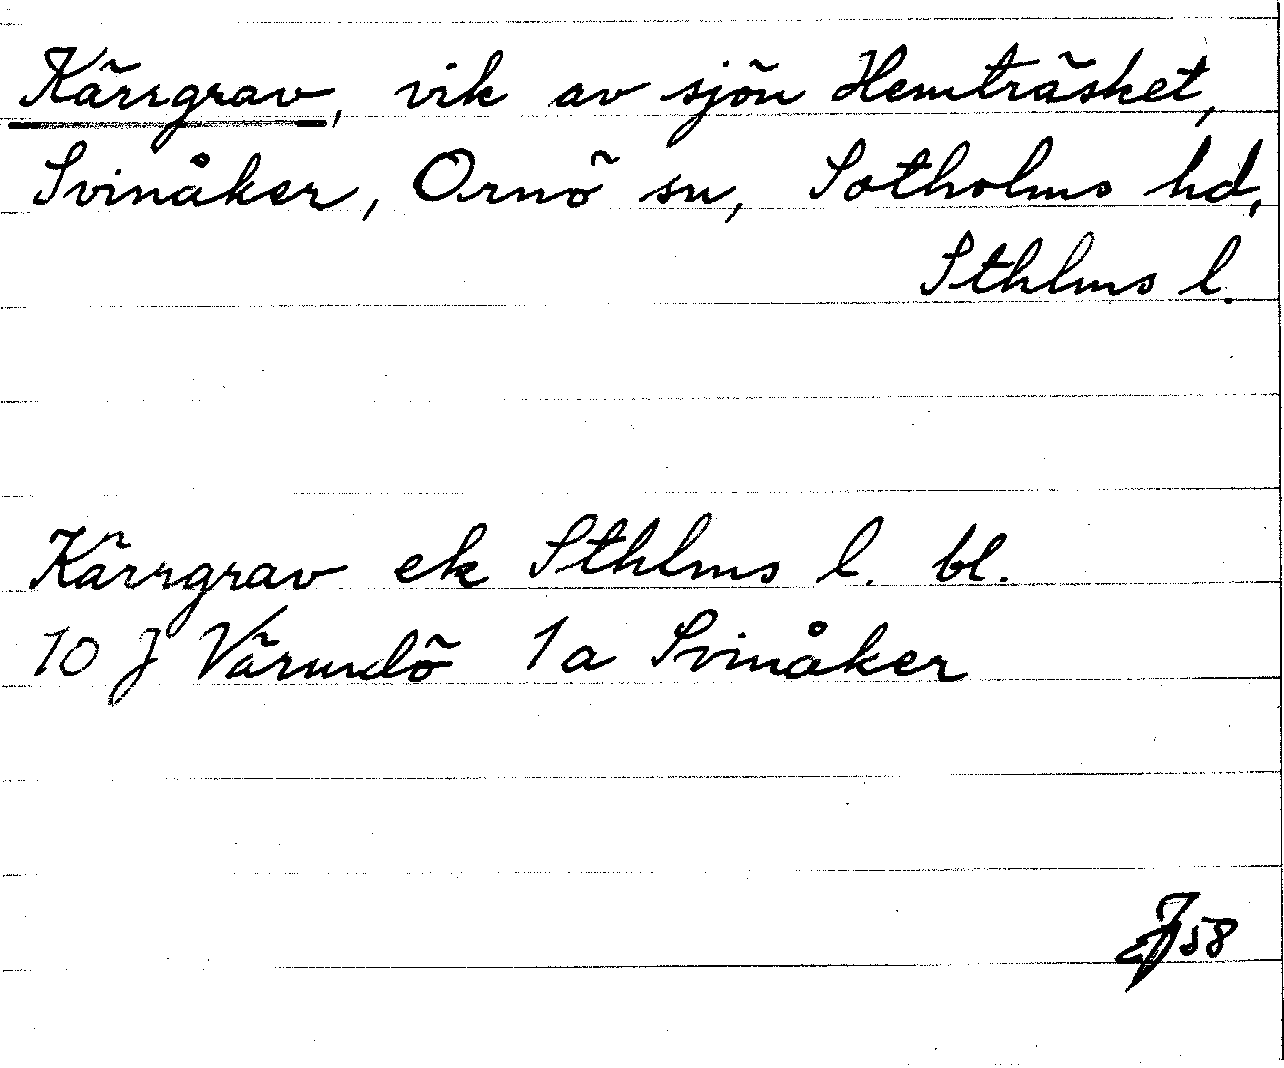 Kärrgrav, vik av sjön Hemträsket,
Svinåker, Ornö sn, Sotholms hd,
Sthlms l.
Kärrgrav ek Sthlms l. bl.
10 J Värundö 1a Svinåker
58